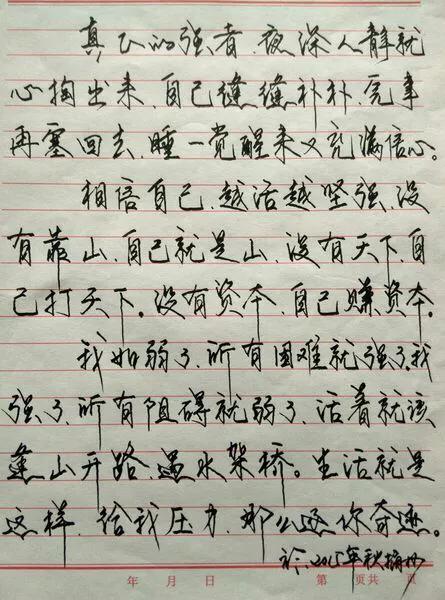 真正的强者,夜深人静就
心掏出来,自己缝缝补补,完事
再塞回去,睡一觉醒来又充满信心。
相信自己,越活越坚强,没
有靠山,自己就是山,没有天下,自
己打天下。没有资本,自己赚资本。
我如弱了,所有困难就强了。我
强了,所有阻碍就弱了,活着就该
逢山开路,遇水架桥。生活就是
这样,给我压力,那么还你奇迹。
2015年秋摘抄
年 月 日 第 页共 页